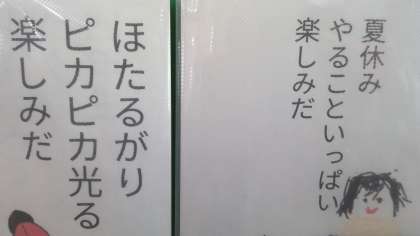 夏休み
やることいっぱい
楽しみだ
ほたるがり
ピカピカ光る
楽しみだ